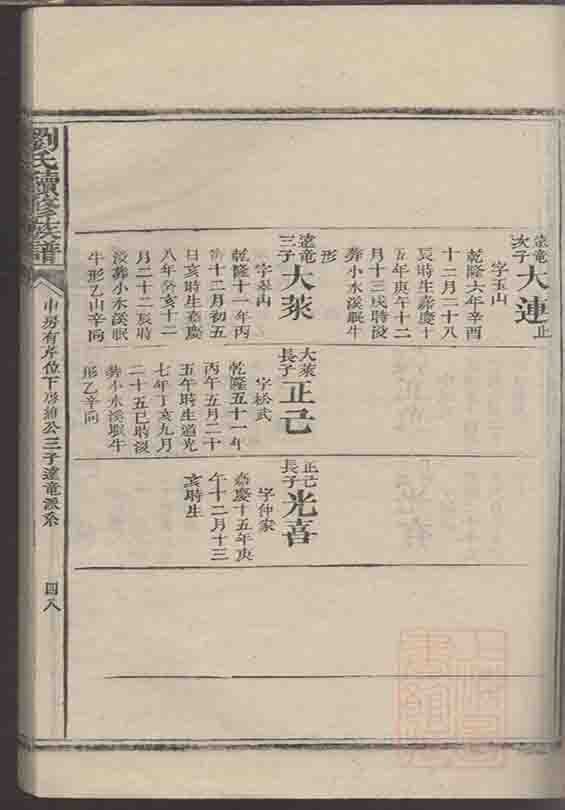 遠竜
次子
大連
止
字玉山
乾隆六年辛酉
十二月二十八
辰時生嘉慶十
五年庚午十二
月十三戌時沒
葬小水溪眠牛
形
遠竜
三子
大萊
字翠山
乾隆十一年丙
寅十二月初五
日亥時生嘉慶
八年癸亥十二
月二十二辰時
沒葬小水溪眠
牛形乙山辛向
大萊
長子
正己
字松武
乾隆五十一年
丙午五月二十
五午時生道光
七年丁亥九月
二十五巳時沒
葬小水溪眠牛
形乙辛向
正己
長子
光喜
字仲家
嘉慶十五年庚
午十二月十三
亥時生
劉氏續修族譜
中房有房位下房維公三子遠竜派系
四八